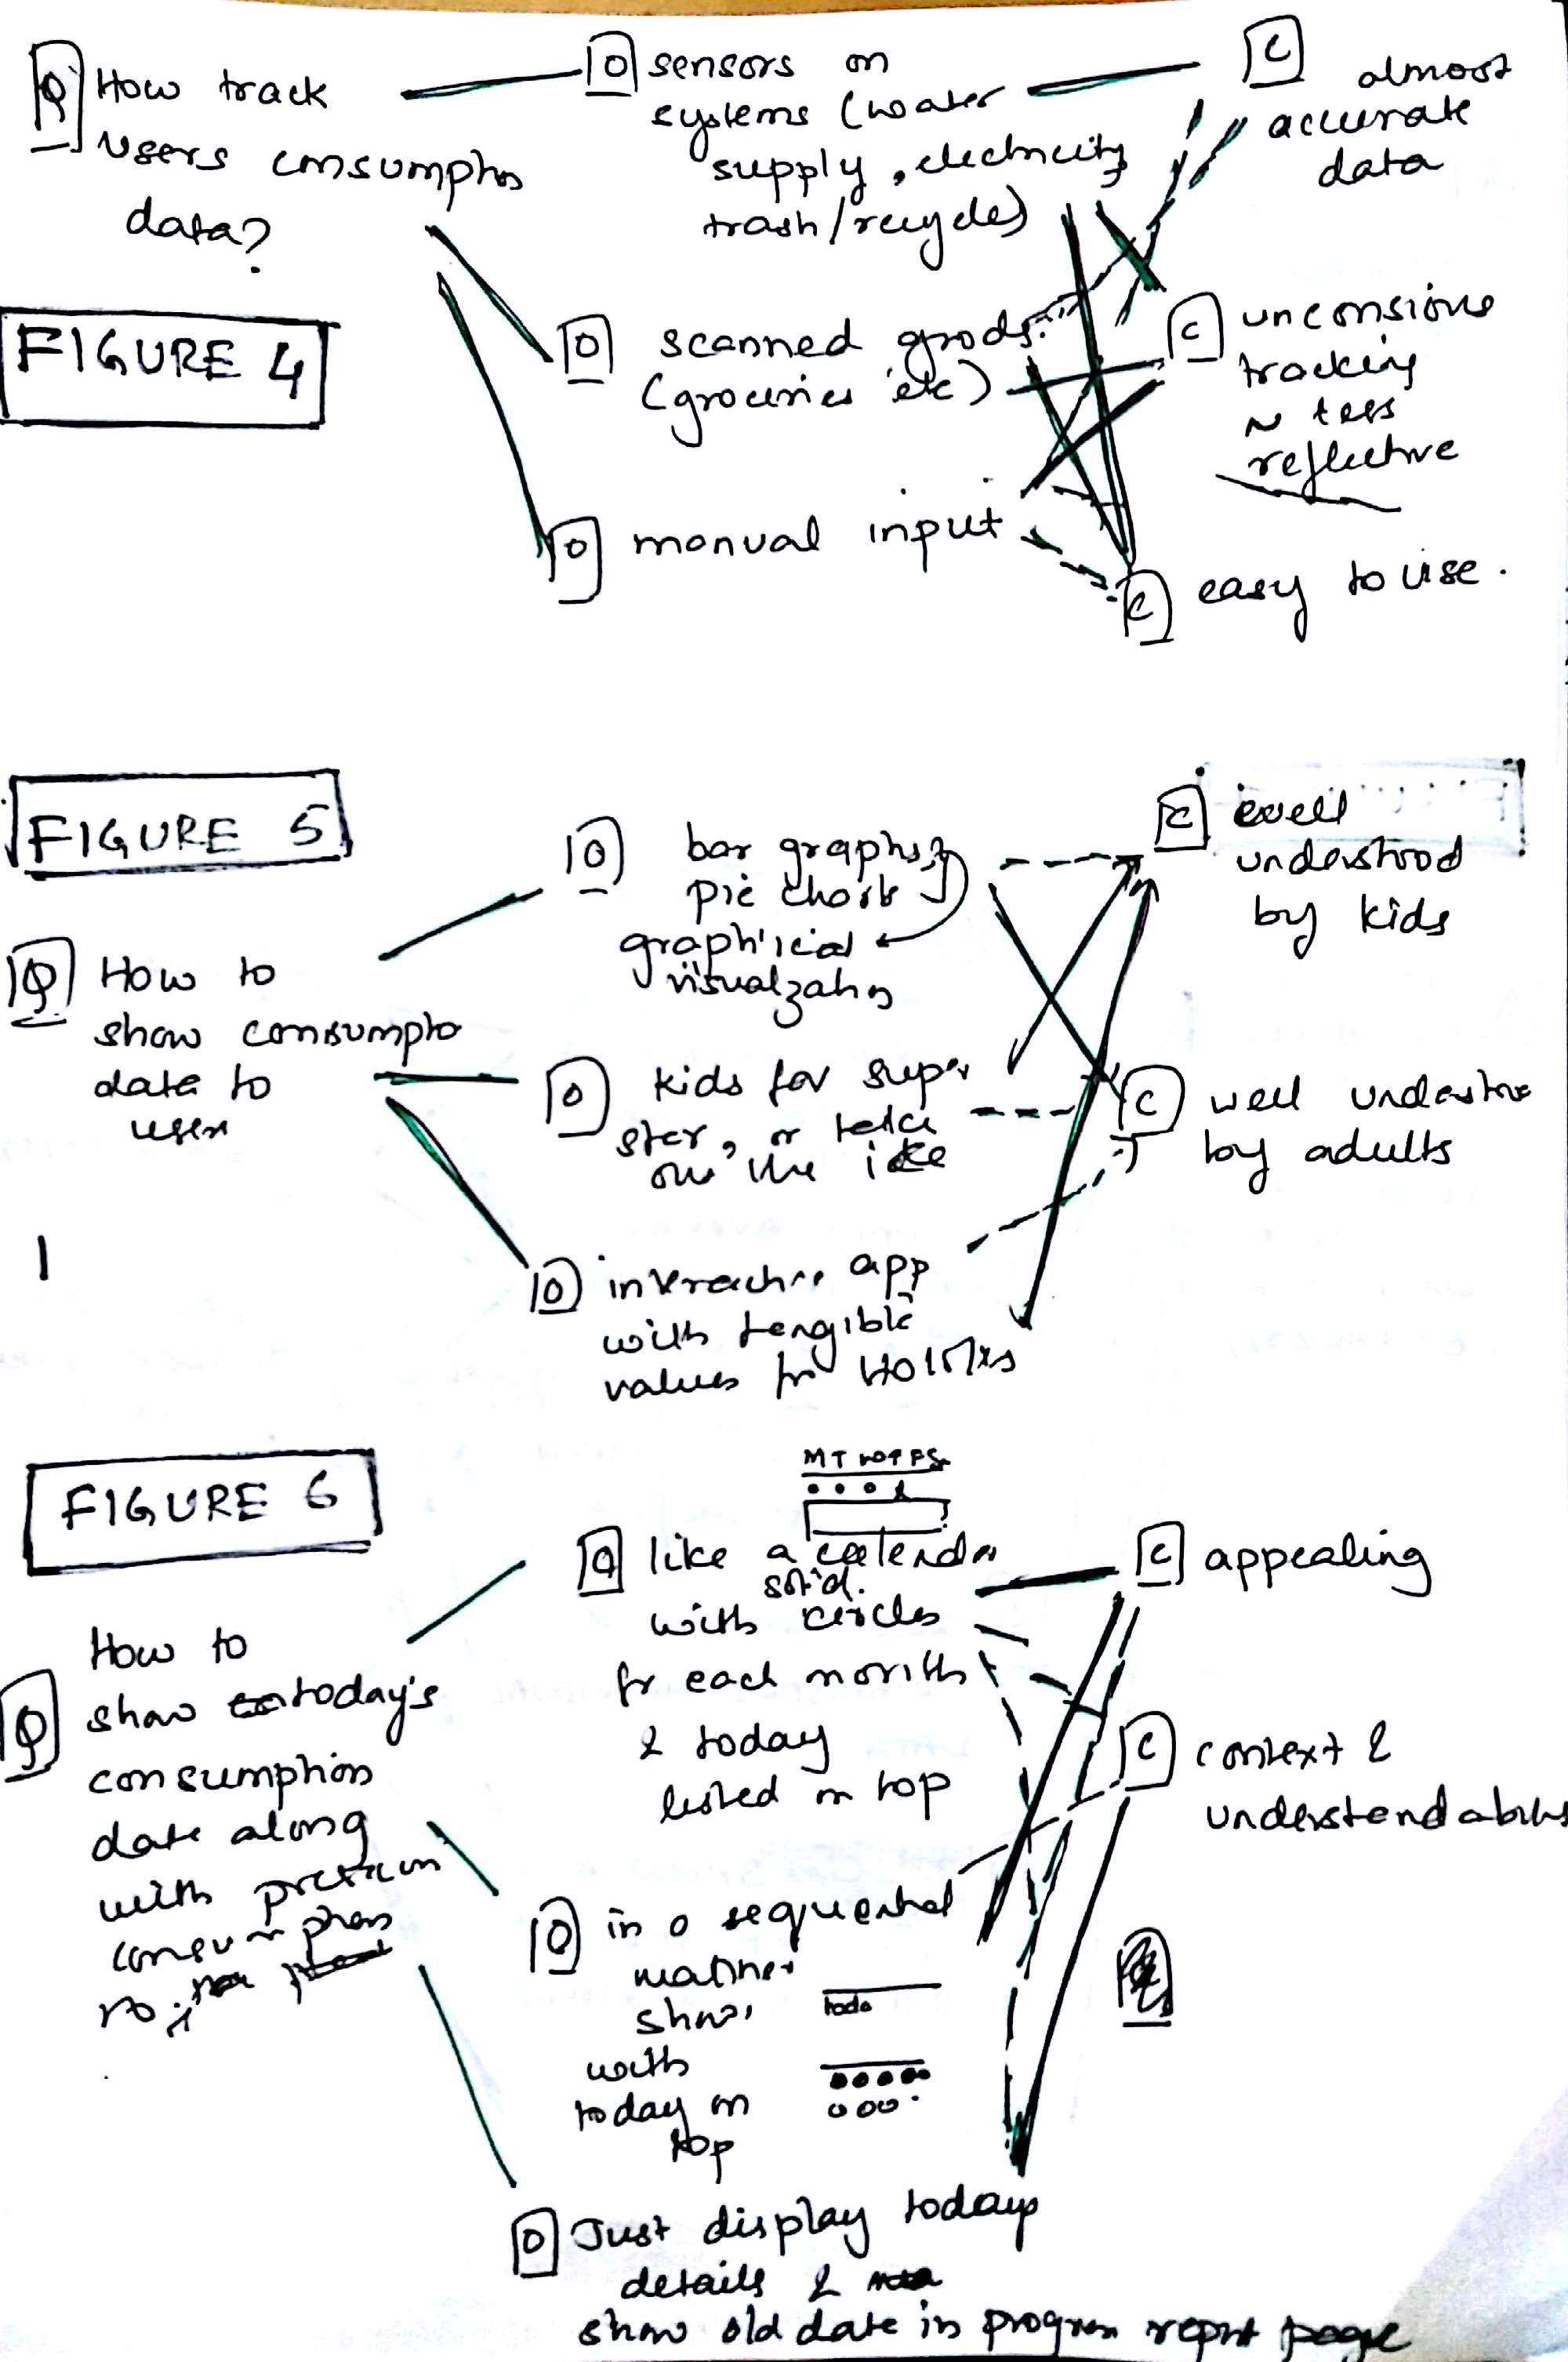 Q How track
users consumptn
data?
FIGURE 4
O sensors on
systems (water
supply, electricity
trash/recycle)
O scanned goods
(groceries etc)
O manual input
C almost
accurate
data
C unconsious
tracking
~ less
reflective
C easy to use.
FIGURE 5
Q How to
show consumptn
data to
user
O bar graphs,
pie charts
graphical
visualzatn
O kids for super
star, or
on the
O interactive app
with tangible
values for
C well
understood
by kids
C well
by adults
FIGURE 6
Q How to
show today's
consumption
data along
with
O like a calendar
solid
with circles
for each month
& today
listed on top
M T W T F S S
O in a sequential
manner
show,
with
today on
top
toda
O Just display todays
details &
show old data in progress report page
C appealing
C context &